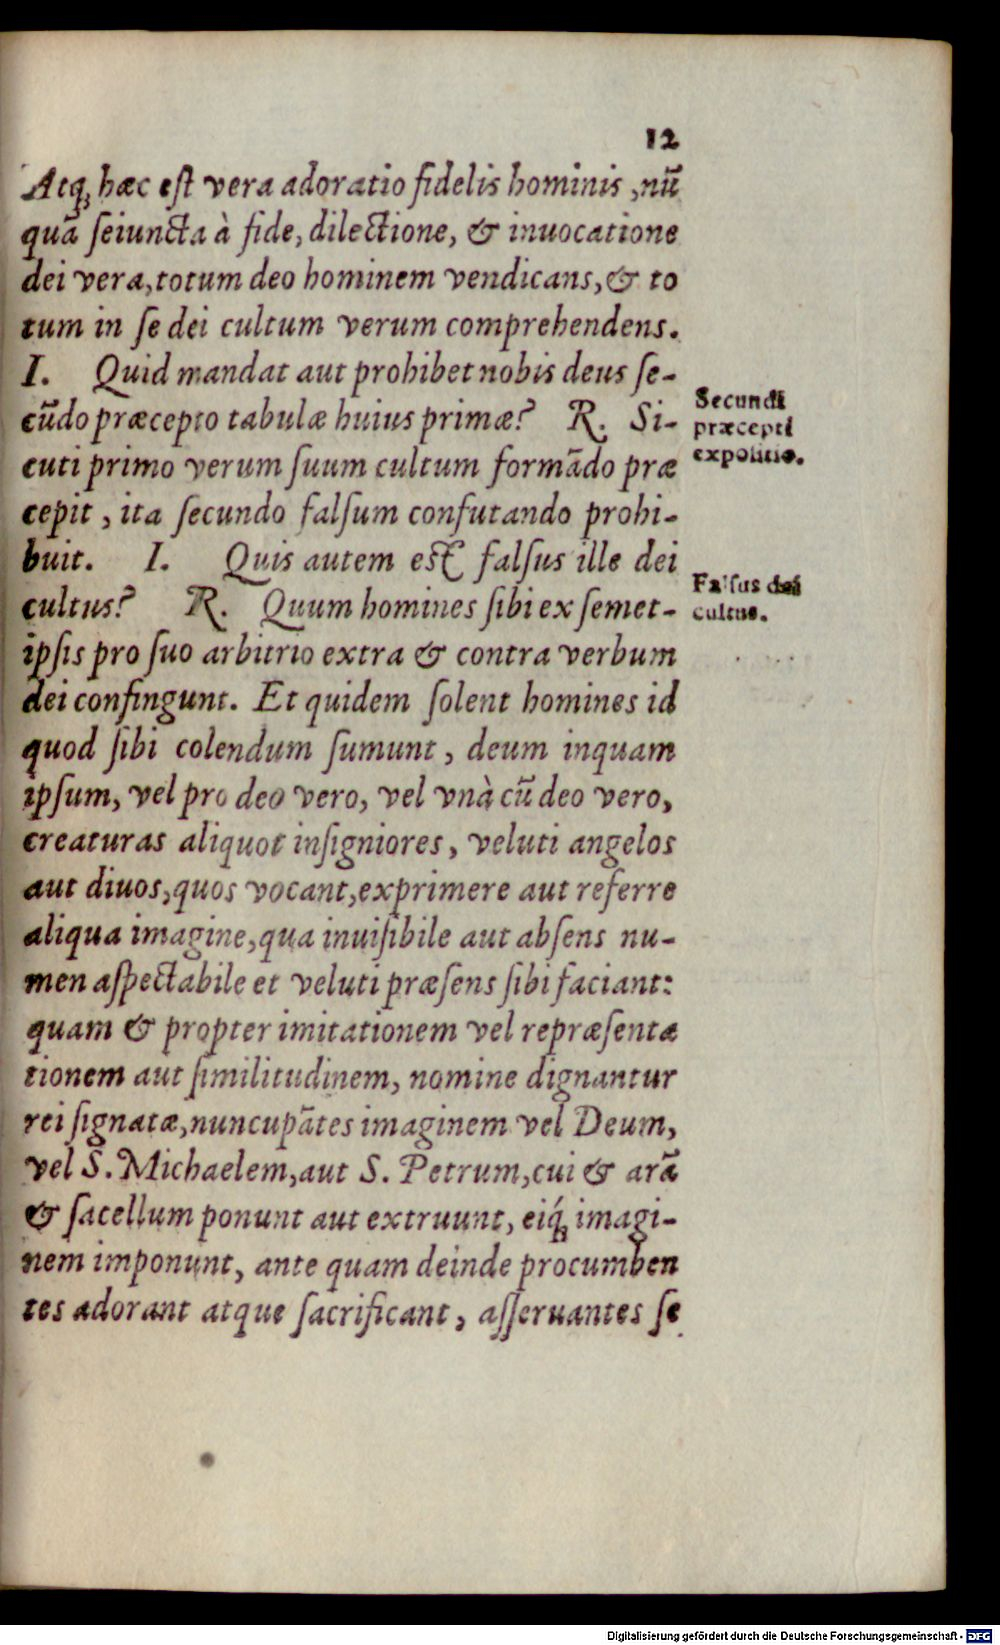 12
Atq; hæc est vera adoratio fidelis hominis, nũ
quã seiuncta à fide, dilectione, & inuocatione
dei vera, totum deo hominem vendicans, & to
tum in se dei cultum verum comprehendens.
I. Quid mandat aut prohibet nobis deus se-
cũdo præcepto tabulæ huius primæ? R. Si-
cuti primo verum suum cultum formãdo præ
cepit, ita secundo falsum confutando prohi-
buit. I. Quis autem est falsus ille dei
cultus? R. Quum homines sibi ex semet-
ipsis pro suo arbitrio extra & contra verbum
dei confingunt. Et quidem solent homines id
quod sibi colendum sumunt, deum inquam
ipsum, vel pro deo vero, vel vnà cũ deo vero,
creaturas aliquot insigniores, veluti angelos
aut diuos, quos vocant, exprimere aut referre
aliqua imagine, qua inuisibile aut absens nu-
men aspectabile et veluti præsens sibi faciant:
quam & propter imitationem vel repræsenta
tionem aut similitudinem, nomine dignantur
rei signatæ, nuncupãtes imaginem vel Deum,
vel S. Michaelem, aut S. Petrum, cui & arã
& sacellum ponunt aut extruunt, eiq́; imagi-
nem imponunt, ante quam deinde procumben
tes adorant atque sacrificant, asseruantes se
Secundi
præcepti
expolitio.
Falsus dei
cultus.
Digitalisierung gefördert durch die Deutsche Forschungsgemeinschaft - DFG